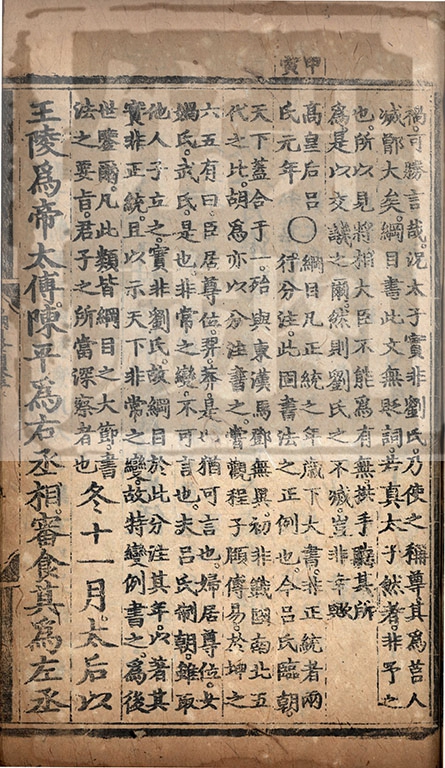 甲寅
禍可勝言哉况太子實非劉氏乃使之稱尊其爲莒人
滅鄫大矣綱目書此文無貶詞若真太子然者非予之
也所以見將相大臣不能爲有無拱手聽其所
爲是以交譏之爾然則劉氏之不滅豈非幸歟
高皇后呂○綱目凡正統之年歲下大書非正統者兩
氏元年 行分注此固書法之正例也今呂氏臨朝
天下蓋合于一殆與東漢馬鄧無異初非國南北五
代之比胡爲亦以分注書之嘗觀程子頤傳易於坤之
六五有曰臣居尊位羿莽是也猶可言也婦居尊位女
媧氏武氏是也非常之變不可言也夫呂氏制朝雖取
他人子立之實非劉氏故綱目於此分注其年以著其
實非正統且以示天下非常之變故特變例書之爲後
世鑒爾凡此類皆綱目之大節書
法之要旨君子之所當深察者也
冬十一月太后以
王陵爲帝太傅陳平爲右丞相審食其爲左丞